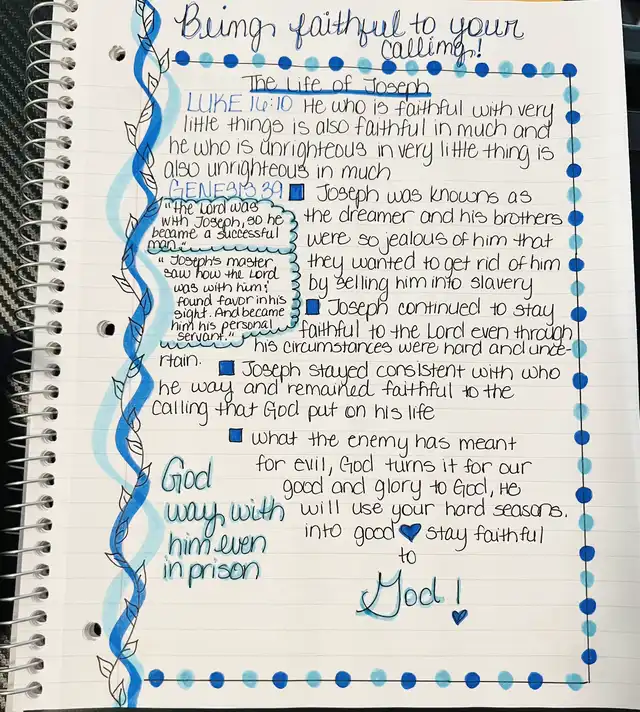 Being faithful to your
calling!
The Life of Joseph
LUKE 16:10 He who is faithful with very
little things is also faithful in much and
he who is unrighteous in very little thing is
also unrighteous in much
GENESIS 39
"the Lord was
with Joseph, so he
became a successful
man."
"Joseph's master
saw how the Lord
was with him;
found favor in his
sight. And became
him his personal
servant."
Joseph was knowns as
the dreamer and his brothers
were so jealous of him that
they wanted to get rid of him
by selling him into slavery
Joseph continued to stay
faithful to the Lord even through
his circumstances were hard and unce-
rtain.
Joseph stayed consistent with who
he way and remained faithful to the
calling that God put on his life
what the enemy has meant
for evil, God turns it for our
good and glory to God, He
will use your hard seasons.
into good stay faithful
to
God!
God
way with
him even
in prison